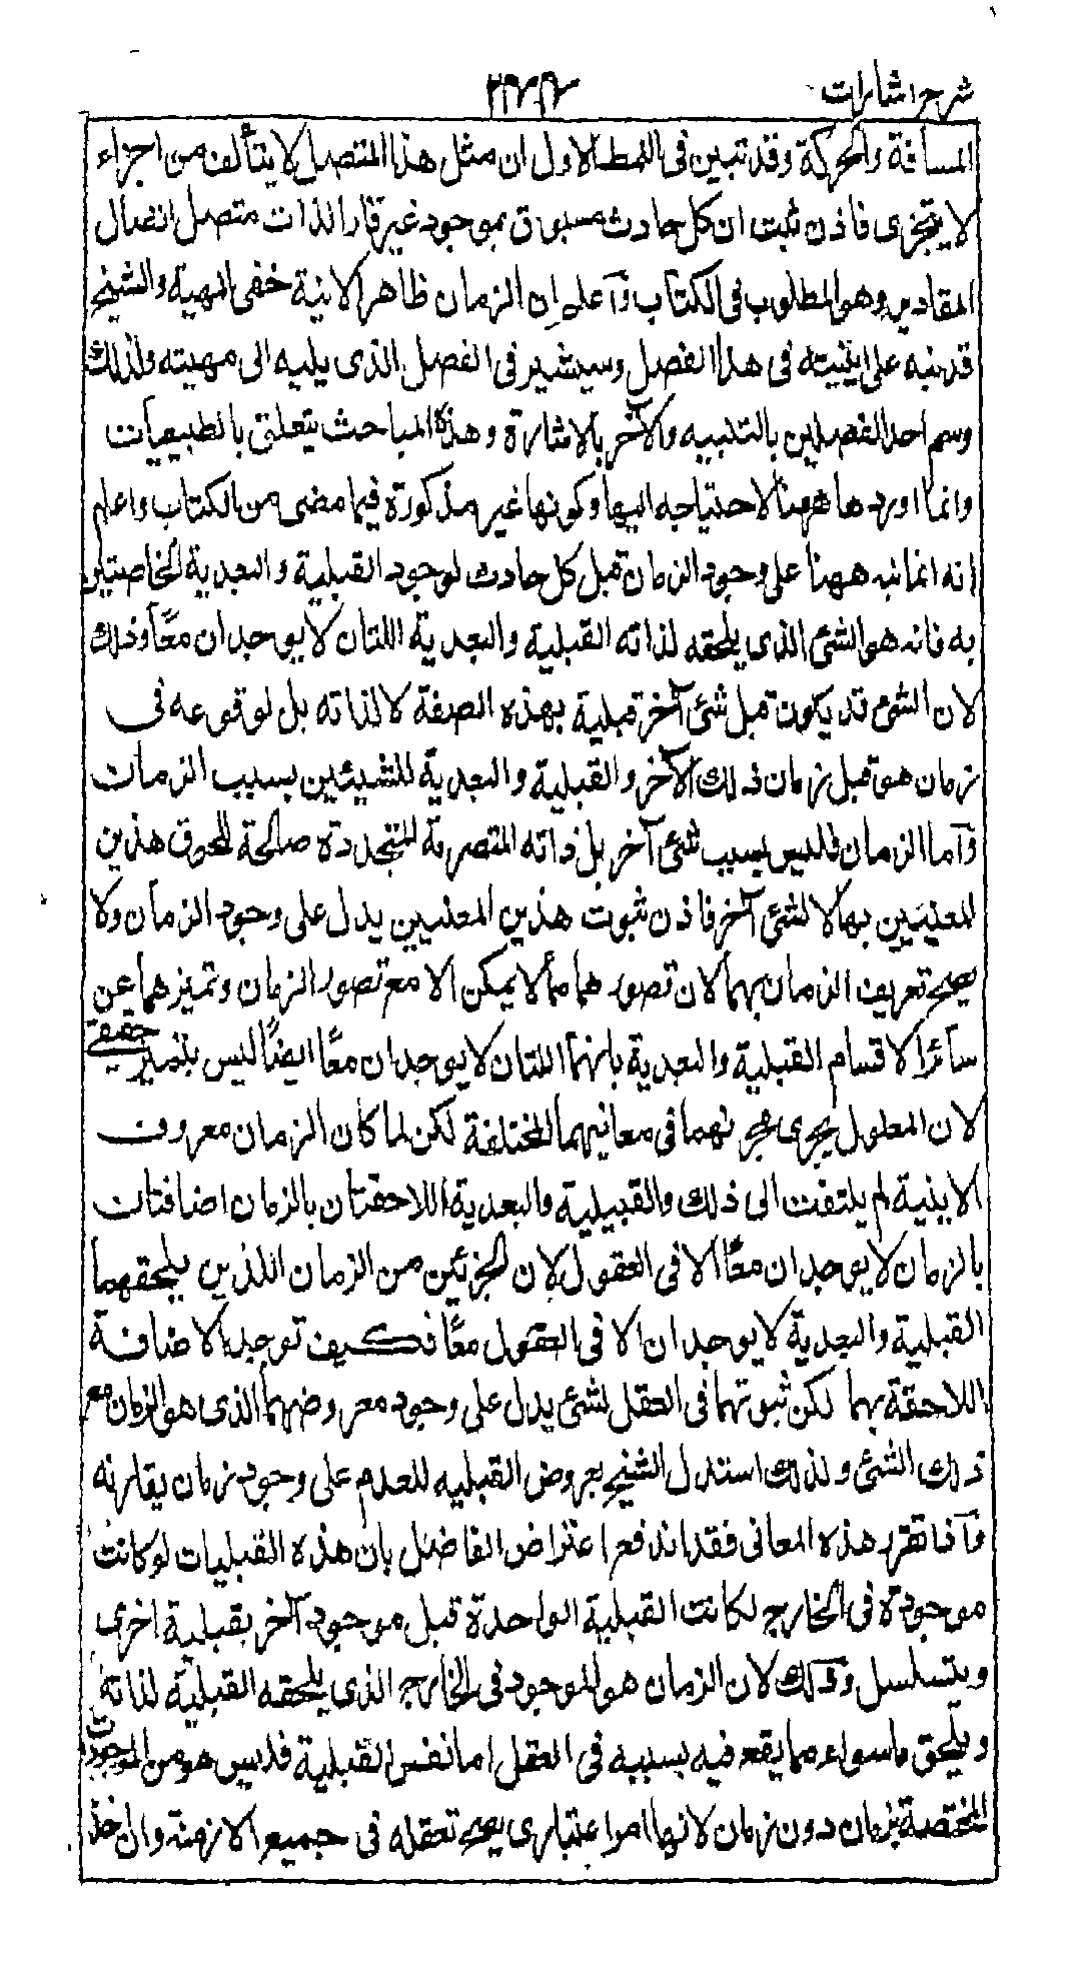 شرح اشارات
المسافة والحركة وقد تبين فى النمط الاول ان مثل هذا المتصل لا يتألف من اجزاء
لا يتجزى فاذن ثبت ان كل حادث مسبوق بموجود غير قار الذات متصل اتصال
المقادير وهو المطلوب فى الكتاب وآعلم ان الزمان ظاهر الانية خفى المهية والشيخ
قد نبه على انيته فى هذا الفصل وسيشير فى الفصل الذى يليه الى مهيته ولذلك
وسم احد الفصلين بالتنبيه والآخر بالاشارة وهذه المباحث يتعلق بالطبيعيات
وانما اوردها ههنا لاحتياجه اليها وكونها غير مذكورة فيما مضى من الكتاب واعلم
انه انما نبه ههنا على وجود الزمان قبل كل حادث لوجود القبلية والبعدية الخاصتين
به فانه هو الشئ الذى يلحقه لذاته القبلية والبعدية اللتان لا يوجدان معًا وذلك
لان الشئ قد يكون قبل شئ آخر قبلية بهذه الصفة لا لذاته بل لوقوعه فى
زمان هو قبل زمان ذلك الآخر والقبلية والبعدية للشيئين بسبب الزمان
وآما الزمان فليس بسبب شئ آخر بل ذاته المتصرمة المتجددة صالحة للحوق هذين
المعنيين بها لا لشئ آخر فاذن ثبوت هذين المعنيين يدل على وجود الزمان ولا
يصح تعريف الزمان بهما لان تصورهما مما لا يمكن الا مع تصور الزمان وتميزهما عن
سائر الاقسام القبلية والبعدية بانهما اللتان لا يوجدان معًا ايضًا ليس بتميز حقيقى
لان المعلول يجرى مجراهما فى معانيهما المختلفة لكن لما كان الزمان معروف
الانية لم يلتفت الى ذلك والقبيلية والبعدية اللاحقتان بالزمان اضافتان
بالزمان لا يوجدان معًا الا فى العقول لان الجزئين من الزمان اللذين يلحقهما
القبلية والبعدية لا يوجدان الا فى العقول معًا فكيف توجد الاضافة
اللاحقة بهما لكن ثبوتهما فى العقل لشئ يدل على وجود معروضهما الذى هو الزمان مع
ذلك الشئ ولذلك استدل الشيخ بعروض القبليه للعدم على وجود زمان يقارنه
وآذا تقرر هذه المعانى فقد اندفع اعتراض الفاضل بان هذه القبليات لو كانت
موجودة فى الخارج لكانت القبلية الواحدة قبل موجود آخر بقبلية اخرى
ويتسلسل وذلك لان الزمان هو الموجود فى الخارج الذى يلحقه القبلية لذاته
ويلحق ماسواه مما يقع فيه بسببه فى العقل اما نفس القبلية فليس هو من الموجودات
المختصة بزمان دون زمان لانها امر اعتبارى يصح تعقله فى جميع الازمنة وان اخذ